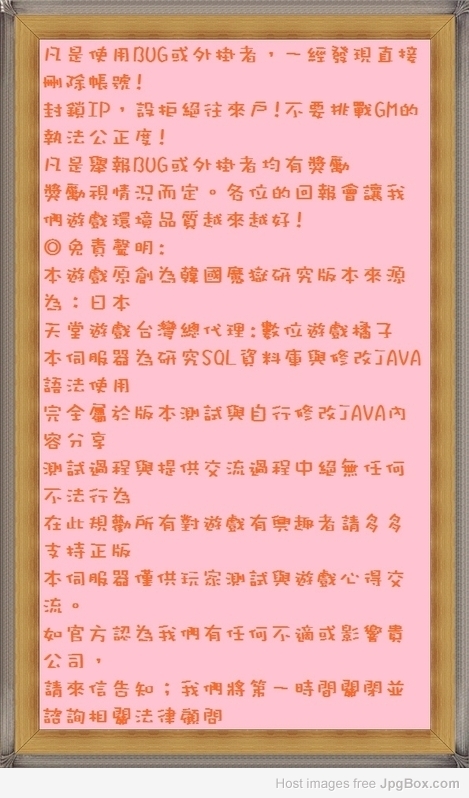 凡是使用BUG或外掛者，一經發現直接
刪除帳號!
封鎖IP，設拒絕往來戶!不要挑戰GM的
執法公正度!
凡是舉報BUG或外掛者均有獎勵
獎勵視情況而定。各位的回報會讓我
們遊戲環境品質越來越好!
◎免責聲明:
本遊戲原創為韓國魔嶽研究版本來源
為：日本
天堂遊戲台灣總代理:數位遊戲橘子
本伺服器為研究SQL資料庫與修改JAVA
語法使用
完全屬於版本測試與自行修改JAVA內
容分享
測試過程與提供交流過程中絕無任何
不法行為
在此規勸所有對遊戲有興趣者請多多
支持正版
本伺服器僅供玩家測試與遊戲心得交
流。
如官方認為我們有任何不適或影響貴
公司，
請來信告知；我們將第一時間關閉並
諮詢相關法律顧問
Host images free JpgBox.com